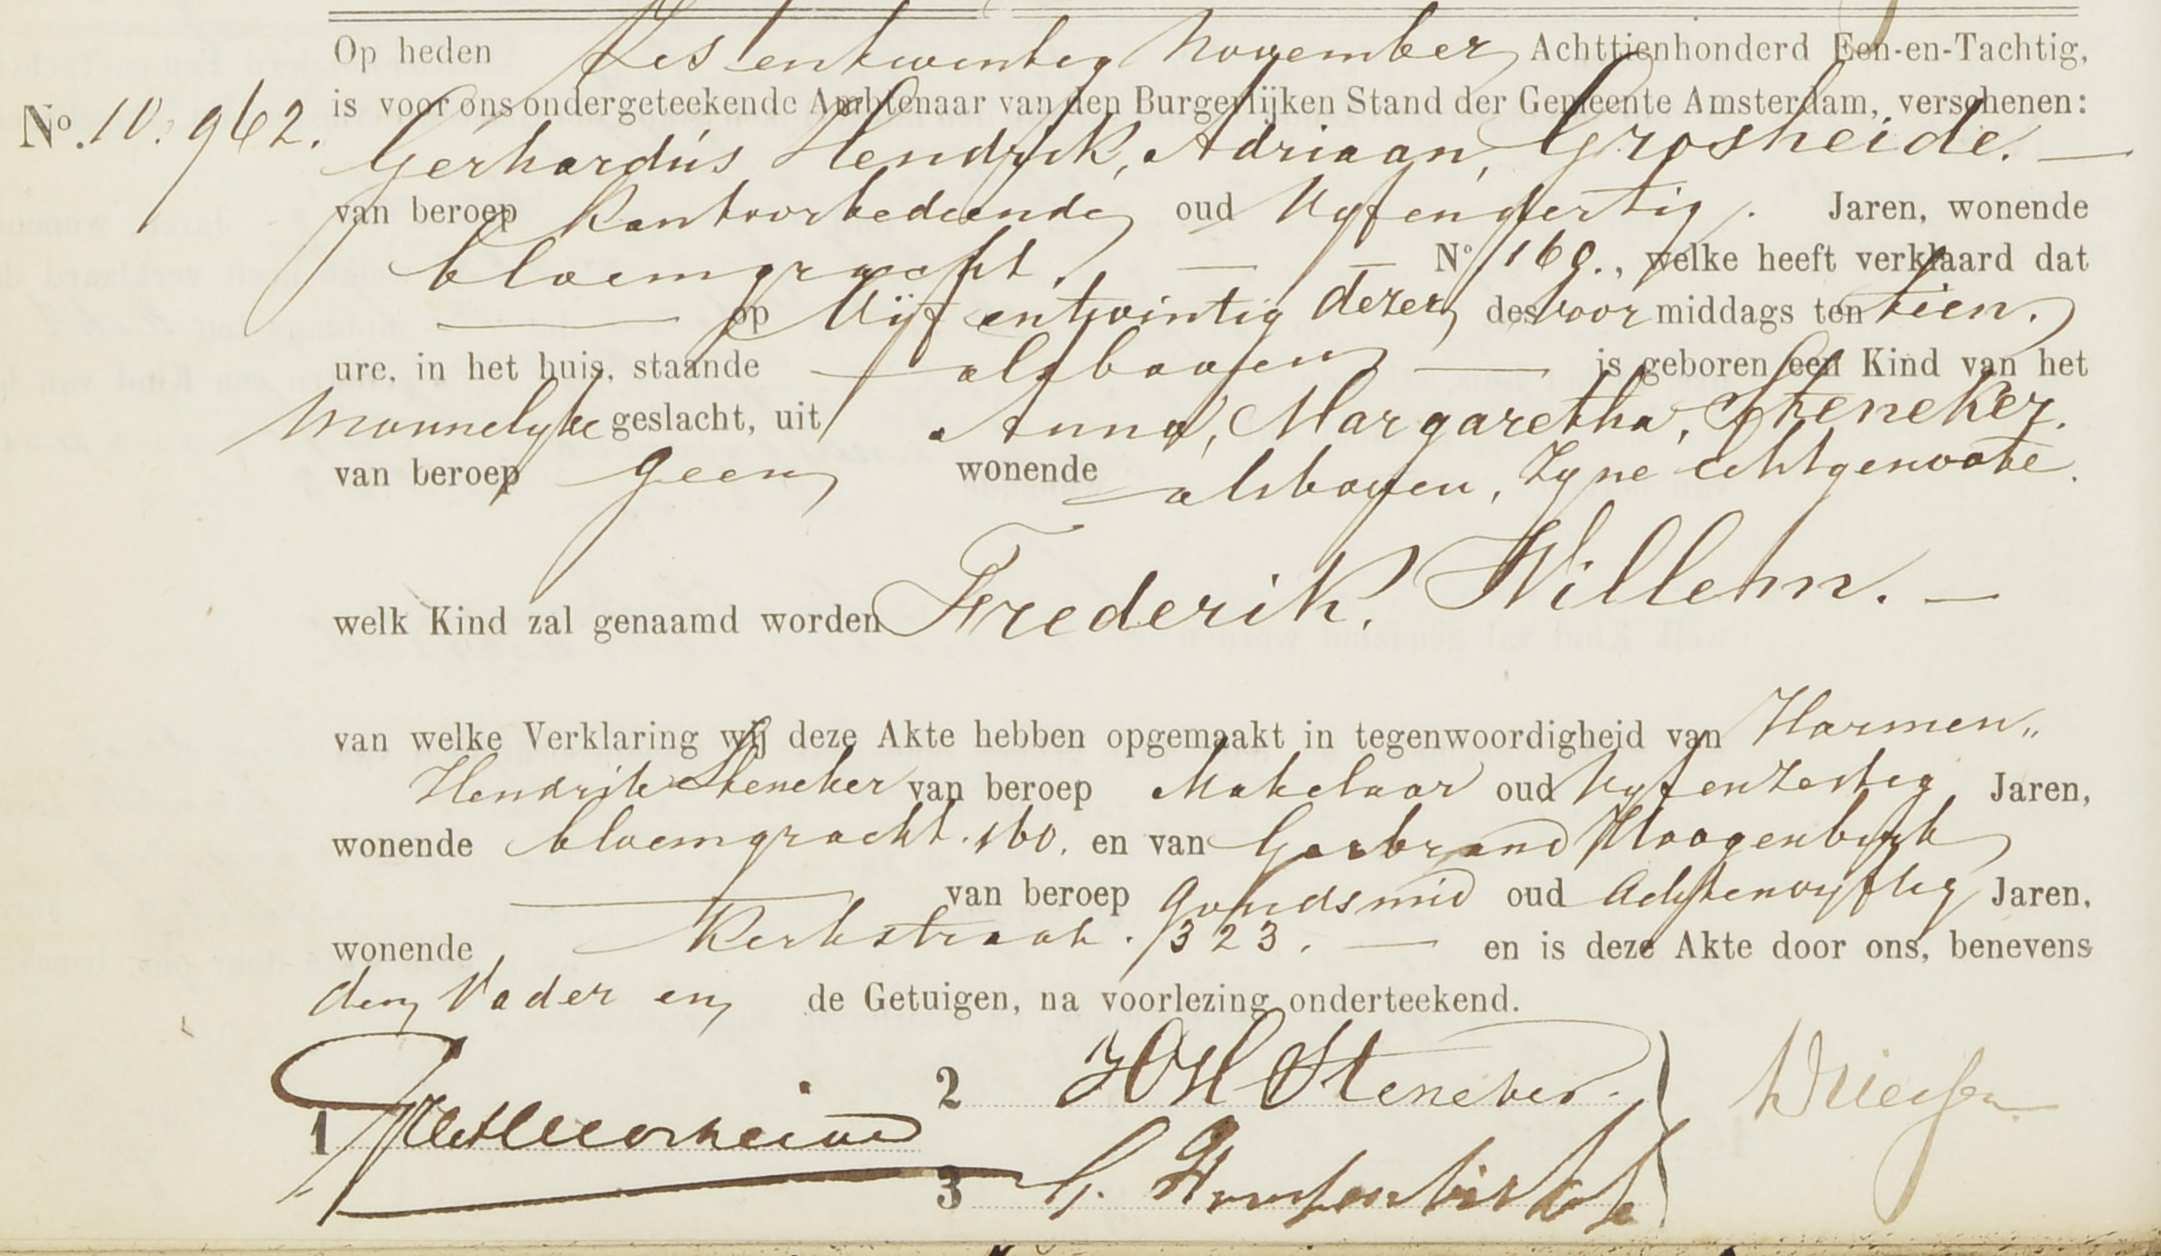 Op heden Zes entwintig November Achttienhonderd Een-en-Tachtig,
No. 10.962. is voor ons ondergeteekende Ambtenaar van den Burgerlijken Stand der Gemeente Amsterdam, verschenen:
Gerhardus Hendrik, Adriaan, Grosheide. —
van beroep Kantoorbediende oud Vyf en dertig. Jaren, wonende
bloemgracht. — — No. 160., welke heeft verklaard dat
— op Vijf entwintig dezer des voor middags ten tien.
ure, in het huis, staande — alsboven — is geboren een Kind van het
Mannelyke geslacht, uit Anna, Margaretha, Steneker.
van beroep Geen wonende — alsboven, Zyne Echtgenoote.
welk Kind zal genaamd worden Frederik, Willem. —
van welke Verklaring wij deze Akte hebben opgemaakt in tegenwoordigheid van Harmen„
Hendrik Steneker van beroep Makelaar oud Vyf enzestig Jaren,
wonende bloemgracht. 160. en van Garbrand Hoogenbirk
— van beroep Goudsmid oud Achtenvyftig Jaren,
wonende — Kerkstraat. 323. — en is deze Akte door ons, benevens
den Vader en de Getuigen, na voorlezing onderteekend.
2 HH Steneker.
1 Grosheide
3 G. Hoogenbirk